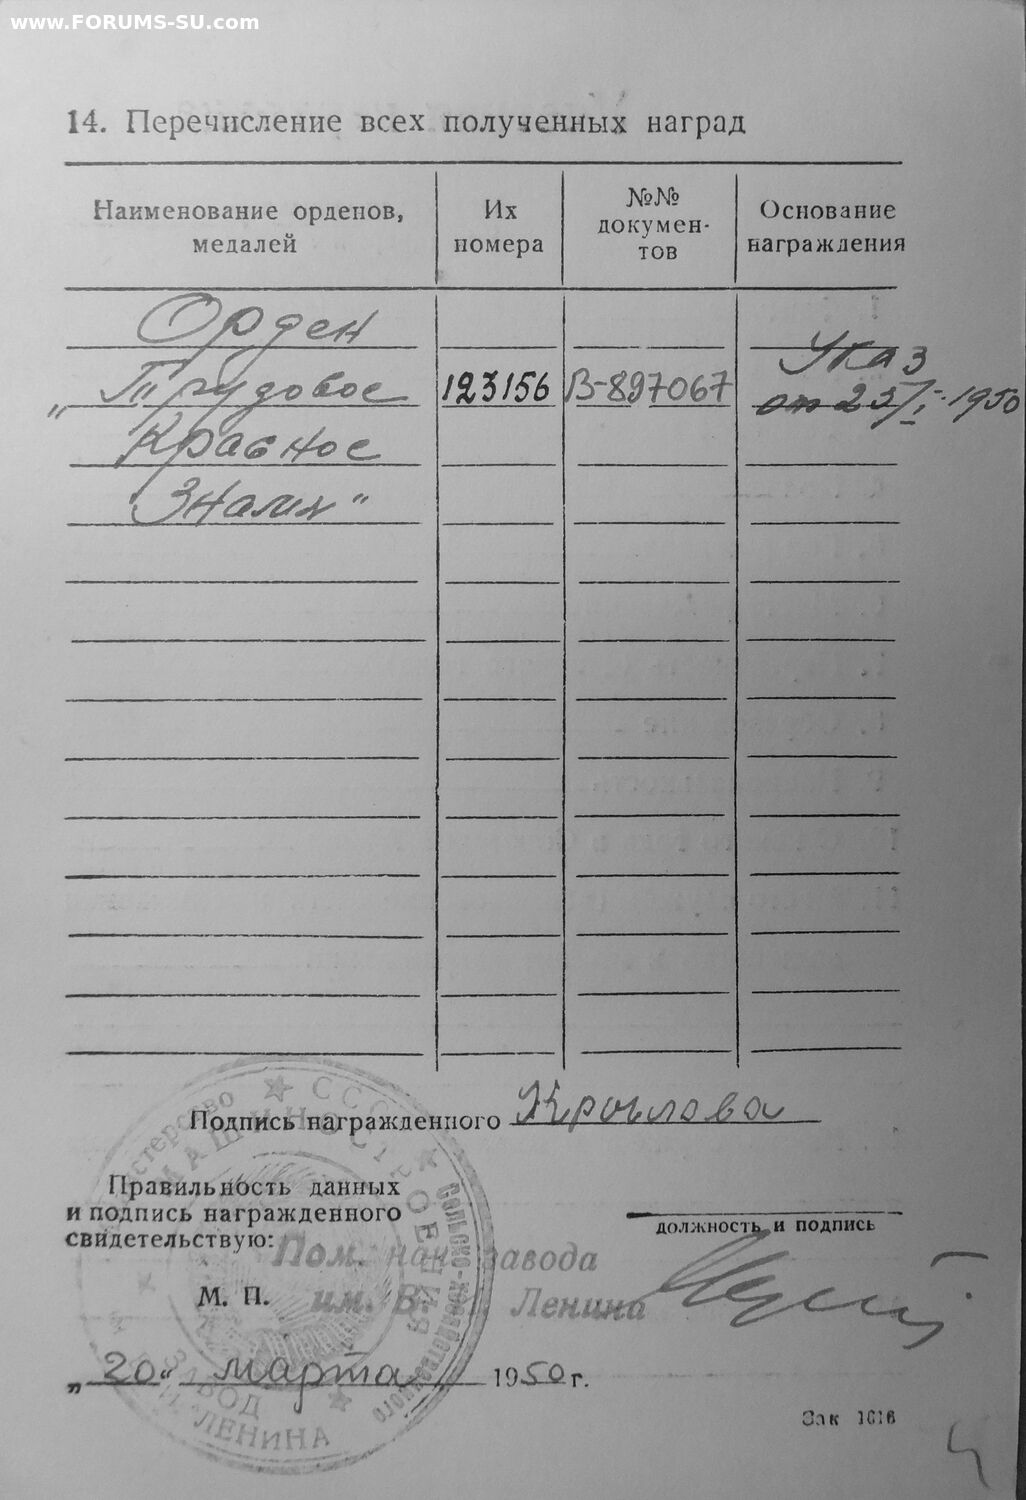 www.FORUMS-SU.com
14. Перечисление всех полученных наград
Наименование орденов, медалей
Их номера
№№ докумен-тов
Основание награждения
Орден
„Трудовое
Красное
Знамя"
123156
В-897067
Указ
от 25/I-1950
Подпись награжденного Крылова
Правильность данных
и подпись награжденного
свидетельствую:
должность и подпись
Пом. нач. завода
им. В. Ленина
М. П.
„20" марта 1950 г.
СССР
Министерство
МАШИНОСТРОЕНИЯ
сельско-хозяйственного
ЗАВОД
ЛЕНИНА
Зак 1616